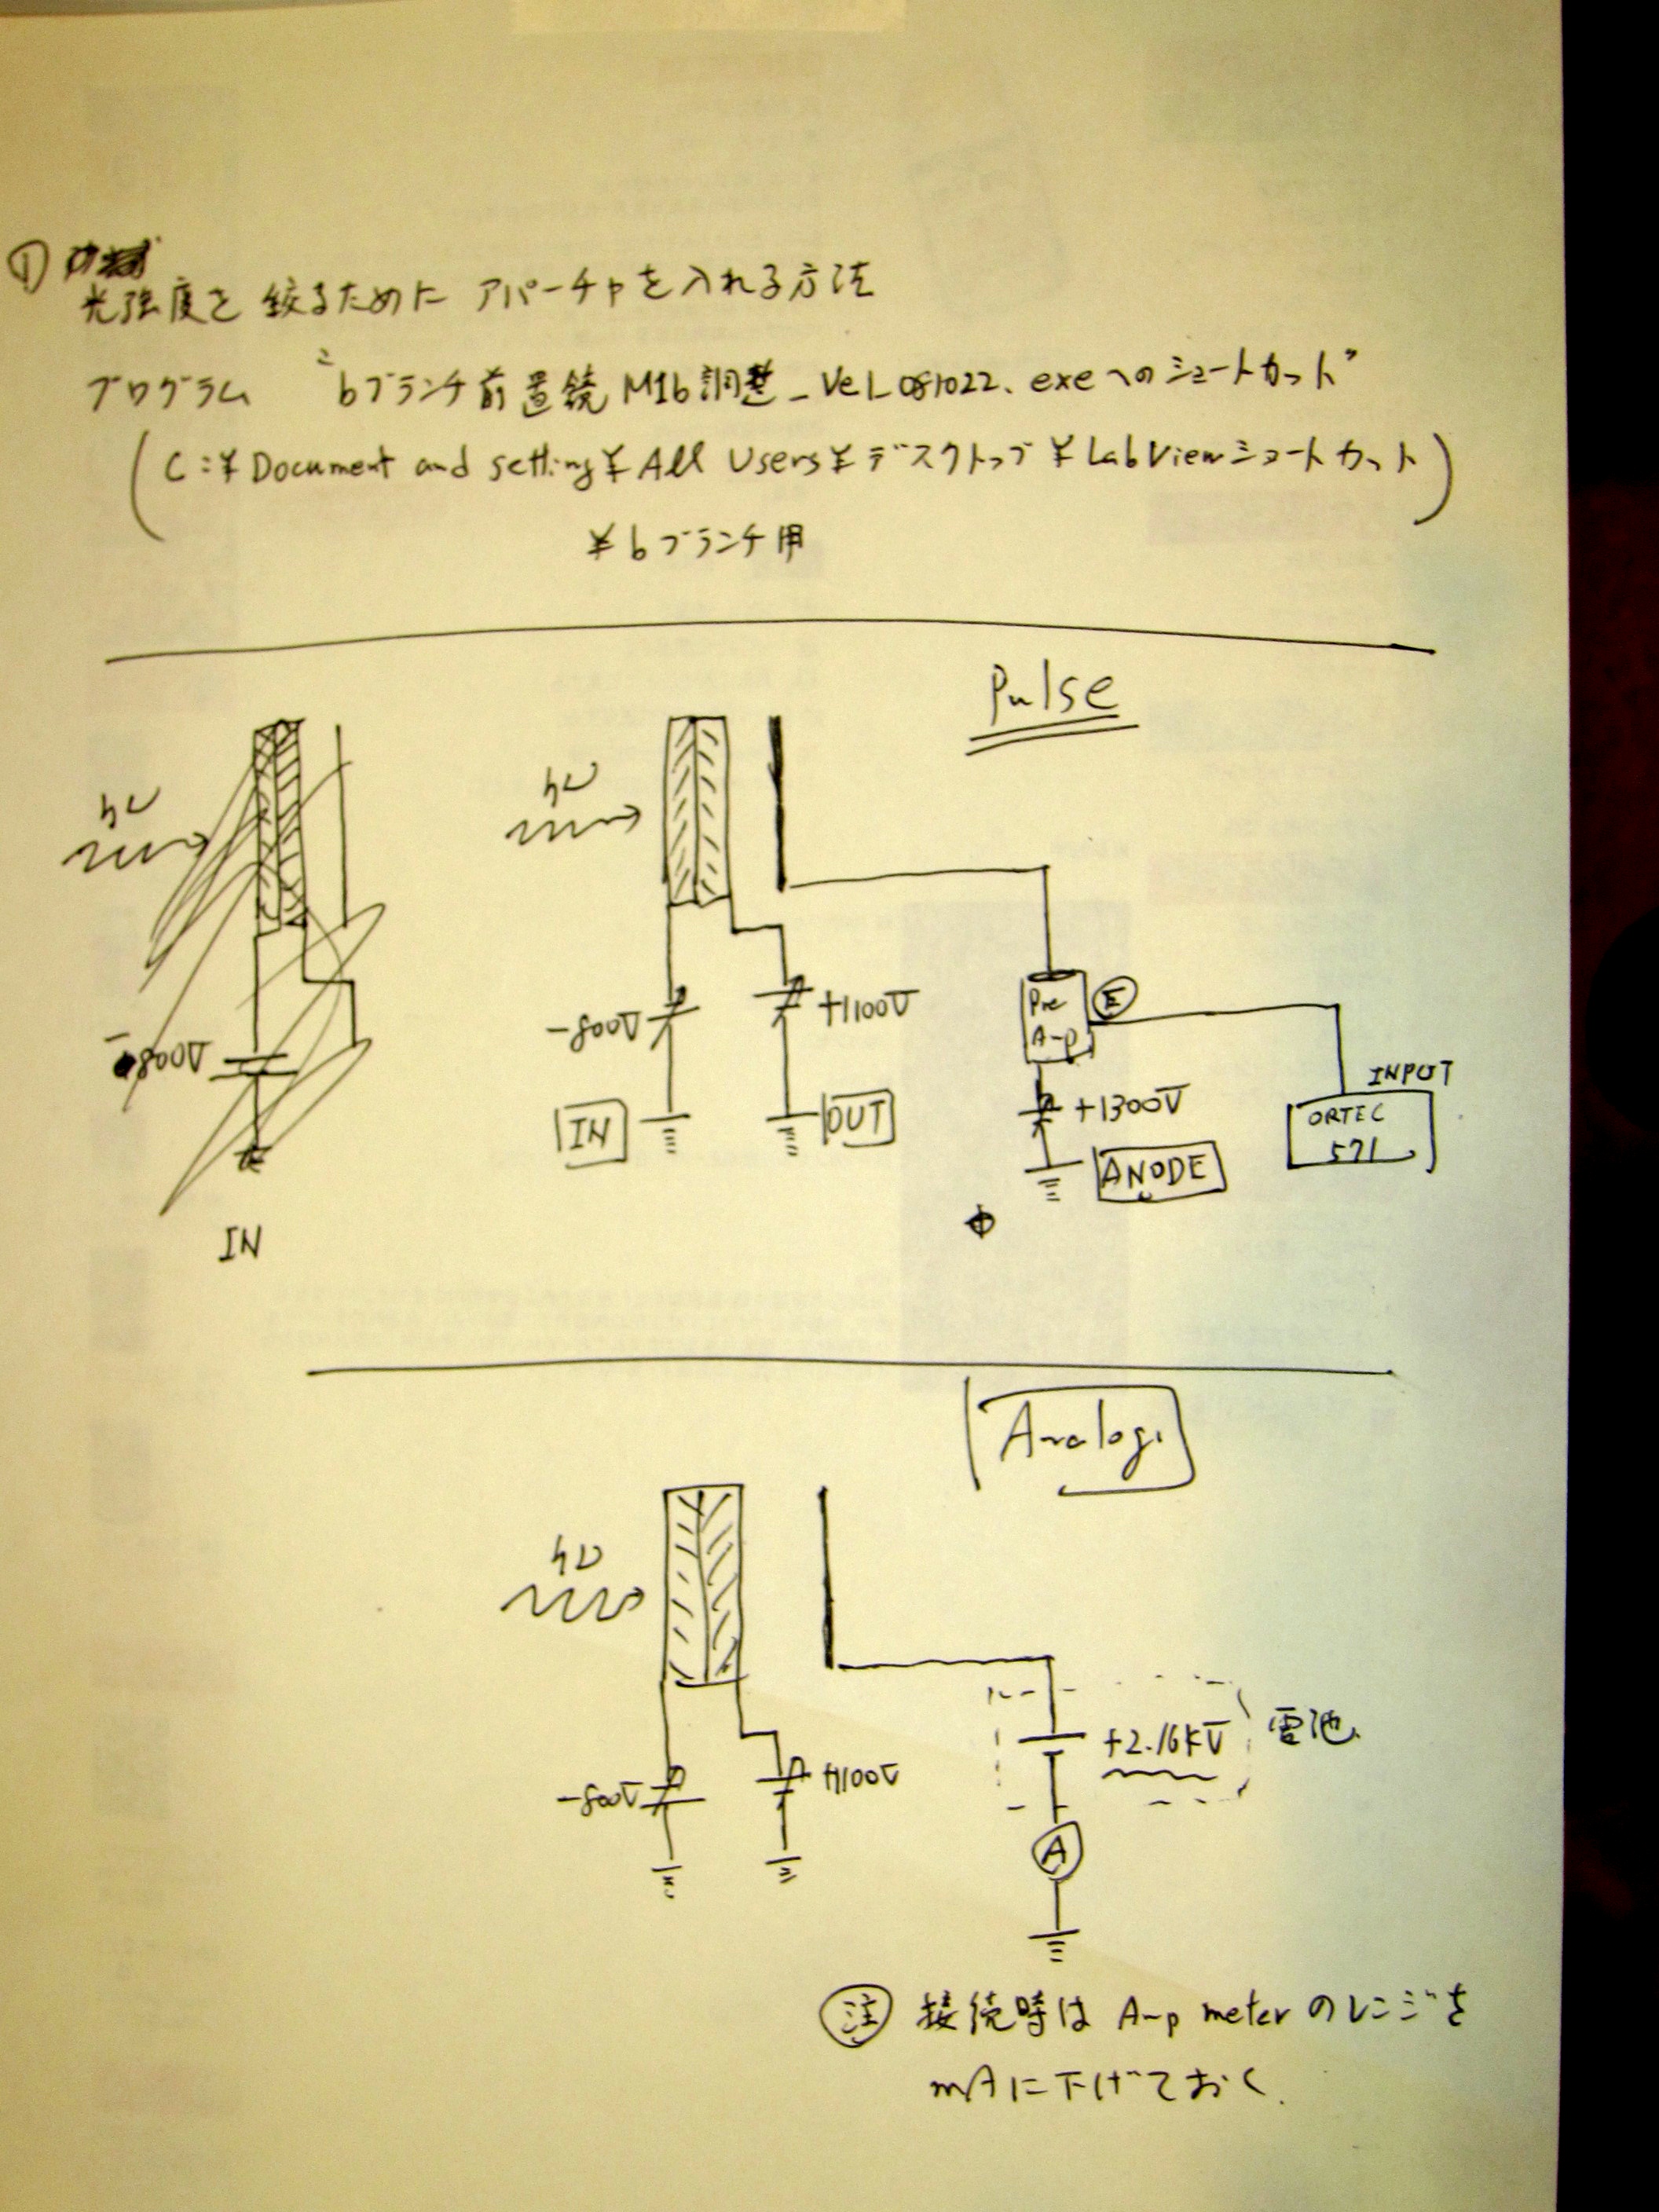 ①
光強度を絞るために アパーチャを入れる方法
プログラム "bブランチ前置鏡M1b調整_Ve1_081022.exeへのショートカット"
(C:¥Document and setting¥All Users¥デスクトップ¥LabViewショートカット
¥bブランチ用)
Pulse
hν
hν
-800V
+1100V
-800V
Pre
Amp
E
IN
OUT
+1300V
INPUT
ORTEC
571
ANODE
IN
Analog
hν
-800V
+1100V
+2.16kV
電池
A
注 接続時は Amp meterのレンジを
mAに下げておく.